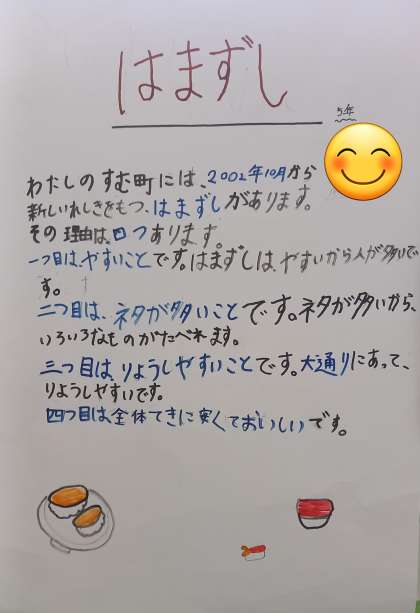 はまずし
5年
わたしのすむ町には、2002年10月から
新しいれしきをもつ、はまずしがあります。
その理由は、四つあります。
一つ目は、やすいことです。はまずしは、やすいから人が多いで
す。
二つ目は、ネタが多いことです。ネタが多いから、
いろいろなものがたべれます。
三つ目は、りょうしやすいことです。大通りにあって、
りようしやすいです。
四つ目は、全体てきに安くておいしいです。